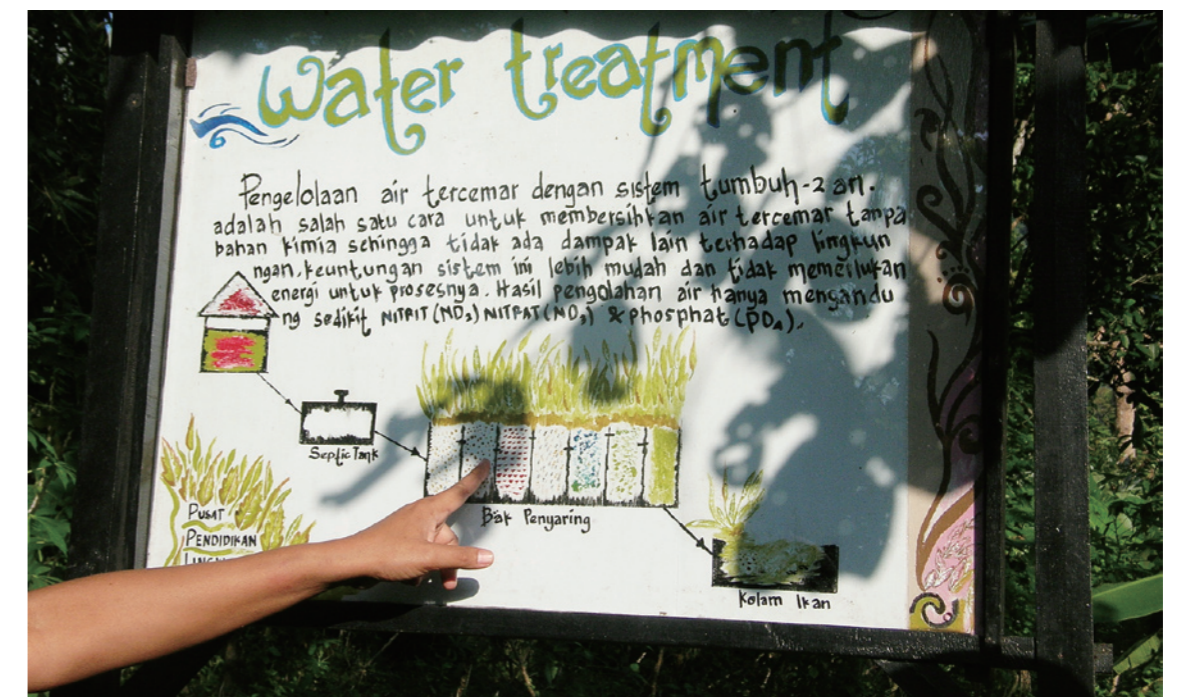 water treatment
Pengelolaan air tercemar dengan sistem tumbuh-2 an.
adalah salah satu cara untuk membersihkan air tercemar tanpa
bahan kimia sehingga tidak ada dampak lain terhadap lingkun
ngan. keuntungan sistem ini lebih mudah dan tidak memerlukan
energi untuk prosesnya. Hasil pengolahan air hanya mengandu
ng sedikit NITRIT (NO₂) NITRAT (NO₃) & Phosphat (PO₄).
Septic Tank
Bak Penyaring
Kolam Ikan
PUSAT
PENDIDIKAN